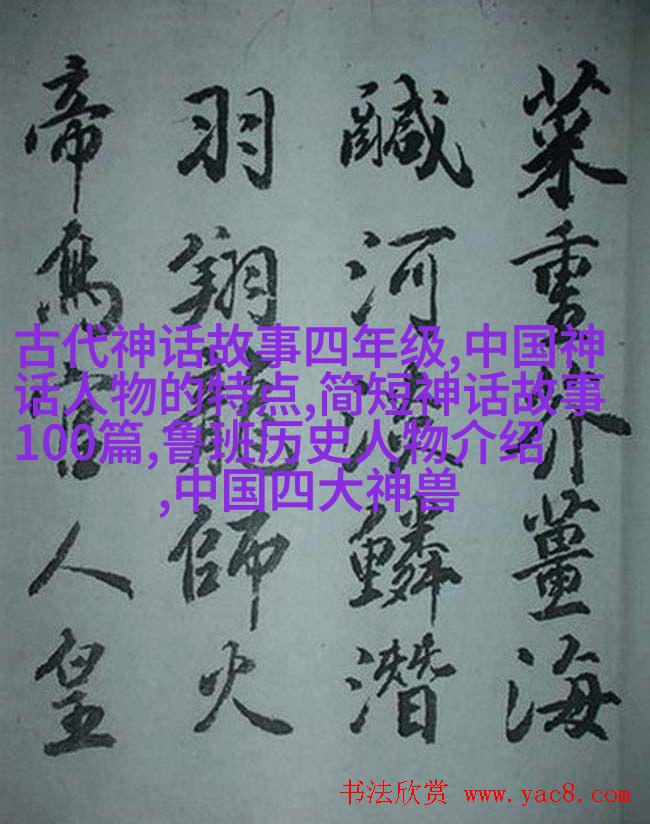 菜重芥薑海
鹹河淡鱗潛
羽翔龍師火
帝鳥官人皇
古代神话故事四年级,中国神
话人物的特点,简短神话故事
100篇,鲁班历史人物介绍
,中国四大神兽
书法欣赏 www.yac8.com